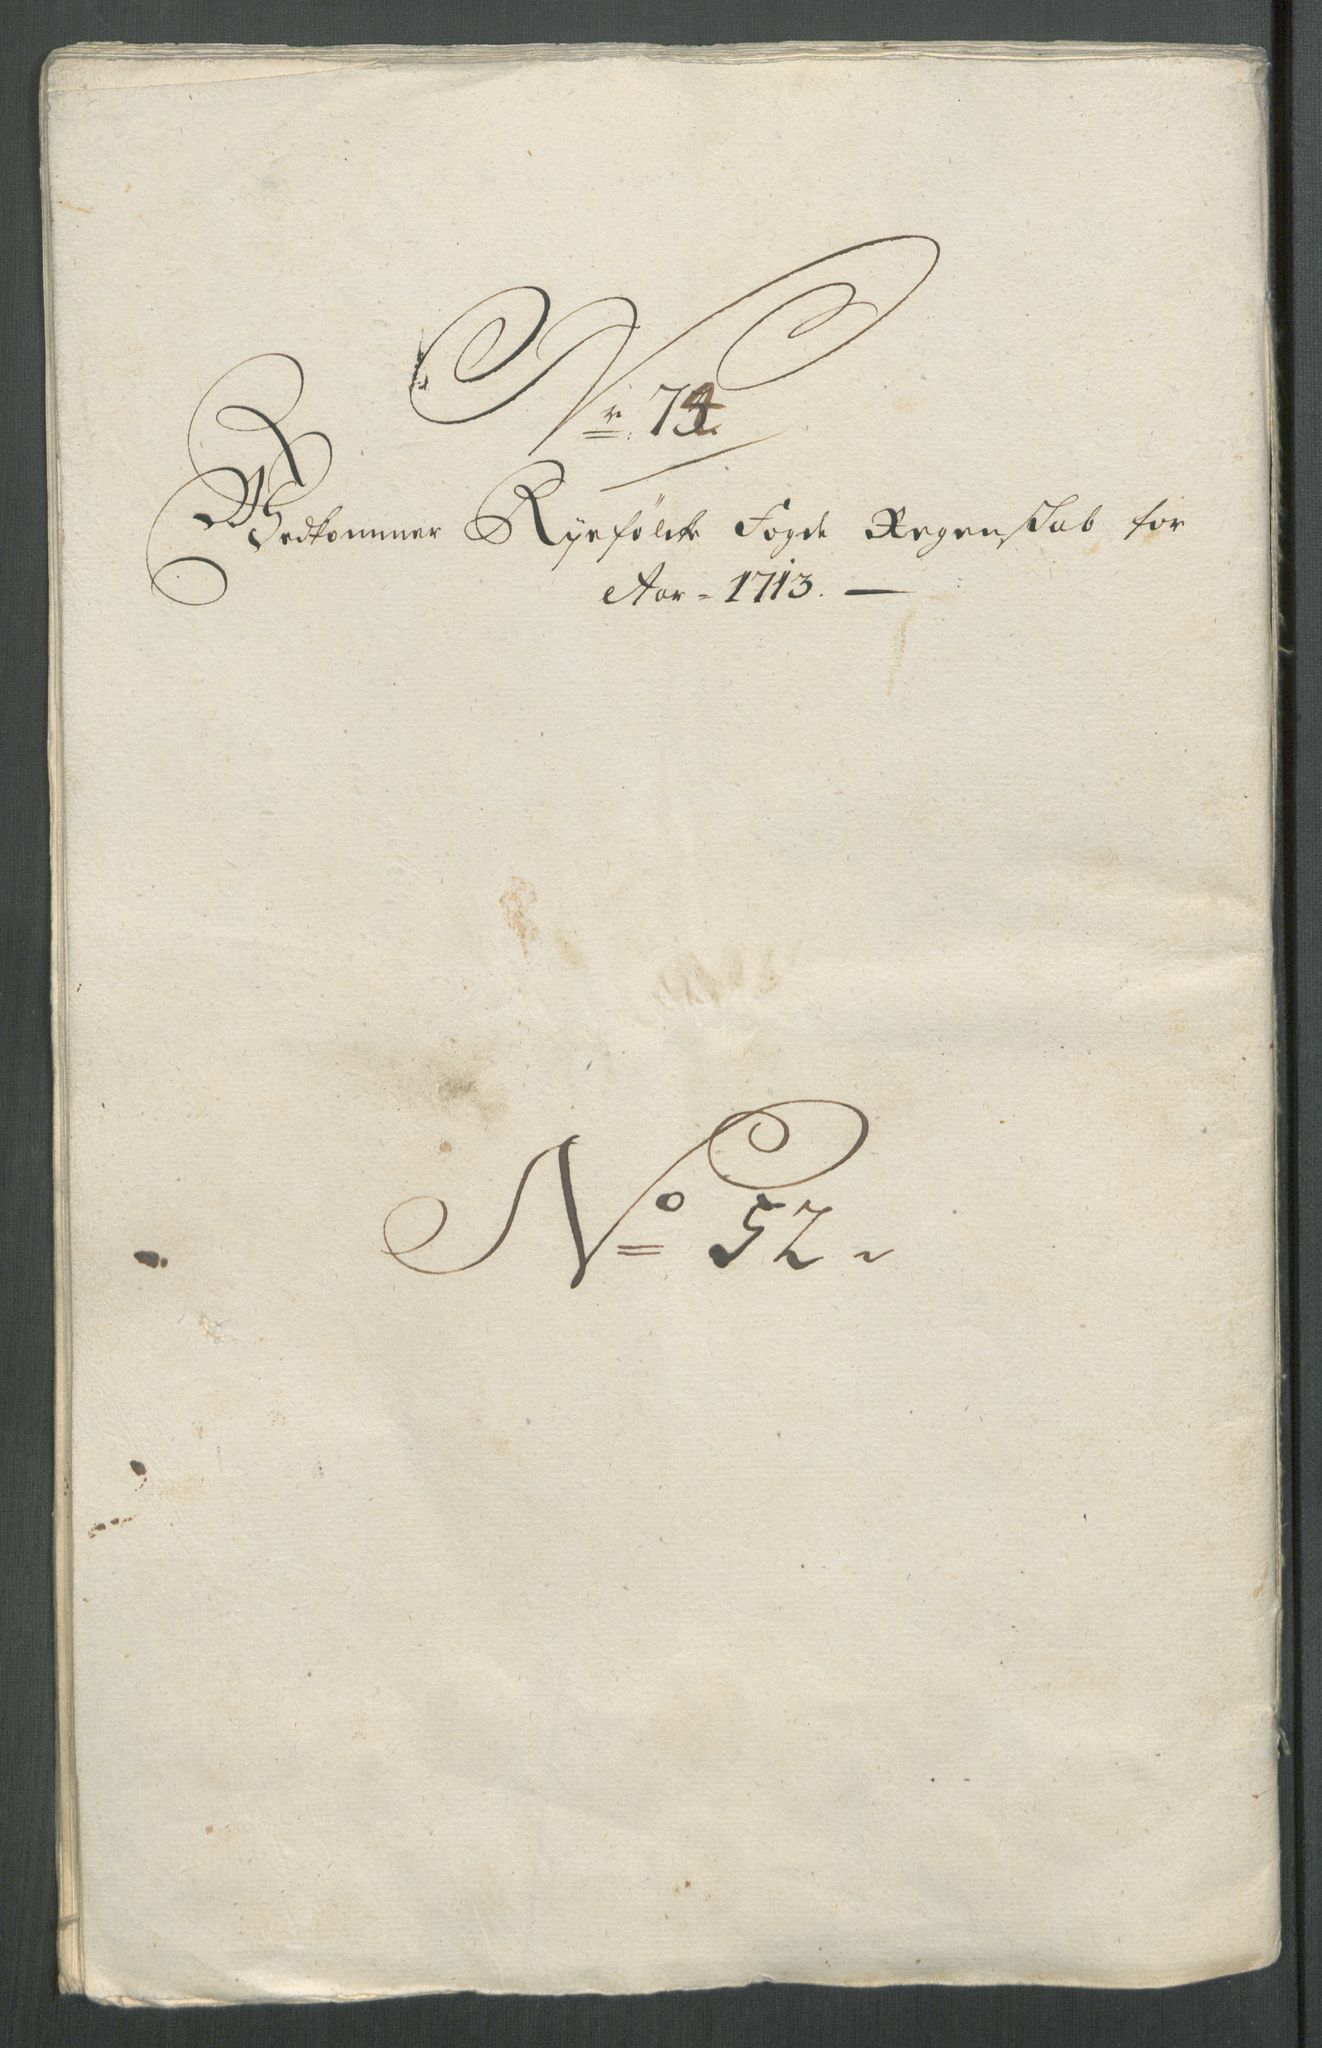 Nr. 74
Vedkommer Ryefölcke Fogde Regenskab for
Aar 1713. —
No 52